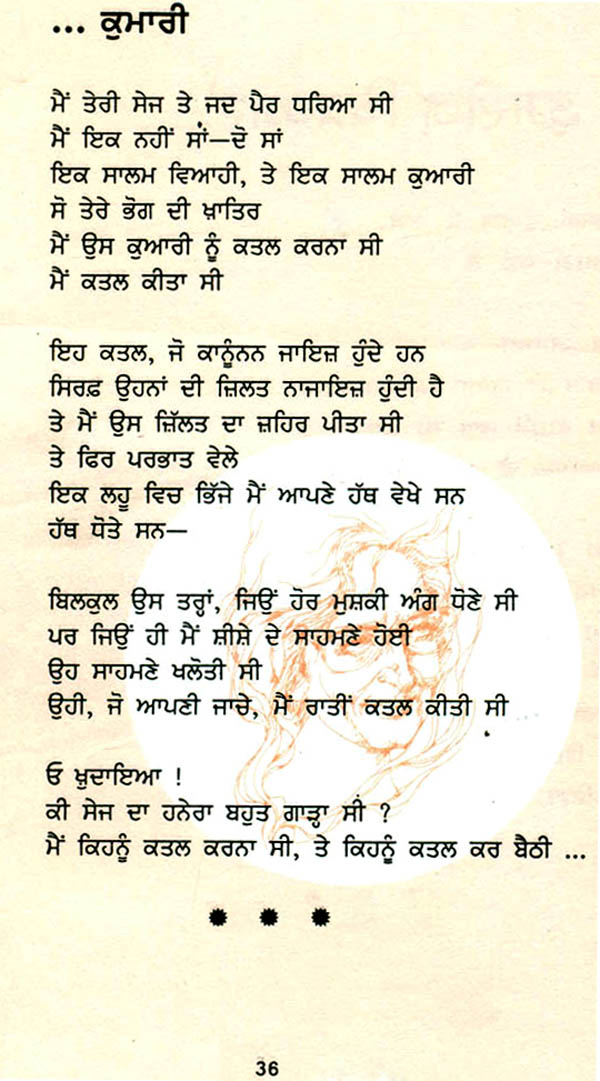 ... ਕੁਮਾਰੀ
ਮੈਂ ਤੇਰੀ ਸੇਜ ਤੇ ਜਦ ਪੈਰ ਧਰਿਆ ਸੀ
ਮੈਂ ਇਕ ਨਹੀਂ ਸਾਂ—ਦੋ ਸਾਂ
ਇਕ ਸਾਲਮ ਵਿਆਹੀ, ਤੇ ਇਕ ਸਾਲਮ ਕੁਆਰੀ
ਸੋ ਤੇਰੇ ਭੋਗ ਦੀ ਖ਼ਾਤਿਰ
ਮੈਂ ਉਸ ਕੁਆਰੀ ਨੂੰ ਕਤਲ ਕਰਨਾ ਸੀ
ਮੈਂ ਕਤਲ ਕੀਤਾ ਸੀ
ਇਹ ਕਤਲ, ਜੋ ਕਾਨੂੰਨਨ ਜਾਇਜ਼ ਹੁੰਦੇ ਹਨ
ਸਿਰਫ਼ ਉਹਨਾਂ ਦੀ ਜ਼ਿਲਤ ਨਾਜਾਇਜ਼ ਹੁੰਦੀ ਹੈ
ਤੇ ਮੈਂ ਉਸ ਜ਼ਿੱਲਤ ਦਾ ਜ਼ਹਿਰ ਪੀਤਾ ਸੀ
ਤੇ ਫਿਰ ਪਰਭਾਤ ਵੇਲੇ
ਇਕ ਲਹੂ ਵਿਚ ਭਿੱਜੇ ਮੈਂ ਆਪਣੇ ਹੱਥ ਵੇਖੇ ਸਨ
ਹੱਥ ਧੋਤੇ ਸਨ—
ਬਿਲਕੁਲ ਉਸ ਤਰ੍ਹਾਂ, ਜਿਉਂ ਹੋਰ ਮੁਸ਼ਕੀ ਅੰਗ ਧੋਣੇ ਸੀ
ਪਰ ਜਿਉਂ ਹੀ ਮੈਂ ਸ਼ੀਸ਼ੇ ਦੇ ਸਾਹਮਣੇ ਹੋਈ
ਉਹ ਸਾਹਮਣੇ ਖਲੋਤੀ ਸੀ
ਉਹੀ, ਜੋ ਆਪਣੀ ਜਾਚੇ, ਮੈਂ ਰਾਤੀਂ ਕਤਲ ਕੀਤੀ ਸੀ
ਓ ਖ਼ੁਦਾਇਆ !
ਕੀ ਸੇਜ ਦਾ ਹਨੇਰਾ ਬਹੁਤ ਗਾੜ੍ਹਾ ਸੀ ?
ਮੈਂ ਕਿਹਨੂੰ ਕਤਲ ਕਰਨਾ ਸੀ, ਤੇ ਕਿਹਨੂੰ ਕਤਲ ਕਰ ਬੈਠੀ ...
36